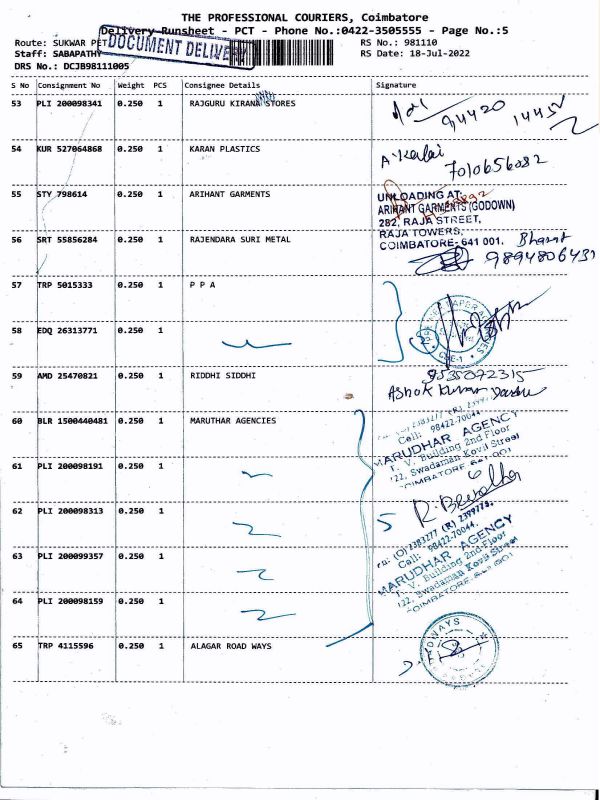 THE PROFESSIONAL COURIERS, Coimbatore
Delivery Runsheet - PCT - Phone No.:0422-3505555 - Page No.:5
Route: SUKWAR PET
DOCUMENT DELIVE
RS No.: 981110
Staff: SABAPATHY
RS Date: 18-Jul-2022
DRS No.: DCJB98111005
S No Consignment No Weight PCS Consignee Details Signature
53 PLI 200098341 0.250 1 RAJGURU KIRANA STORES
94420 14452
54 KUR 527064868 0.250 1 KARAN PLASTICS
A. Kalai
7010656082
55 STY 798614 0.250 1 ARIHANT GARMENTS
UNLOADING AT:
ARIHANT GARMENTS (GODOWN)
282, RAJA STREET,
RAJA TOWERS,
COIMBATORE- 641 001.
56 SRT 55856284 0.250 1 RAJENDARA SURI METAL
Bharat
9894806431
57 TRP 5015333 0.250 1 P P A
58 EDQ 26313771 0.250 1
CBE-1
2
59 AMD 25470821 0.250 1 RIDDHI SIDDHI
9535072315
Ashok Kumar
60 BLR 1500440481 0.250 1 MARUTHAR AGENCIES
Cell: 98422-70044
MARUDHAR AGENCY
T. V. Building 2nd Floor
122, Swadaman Kovil Street
61 PLI 200098191 0.250 1
62 PLI 200098313 0.250 1
5
(O) 2383277 (R) 2399779.
Cell: 98422-70044.
MARUDHAR AGENCY
T. V. Building 2nd-Floor
122, Swadaman Kovil Street
63 PLI 200099357 0.250 1
64 PLI 200098159 0.250 1
65 TRP 4115596 0.250 1 ALAGAR ROAD WAYS